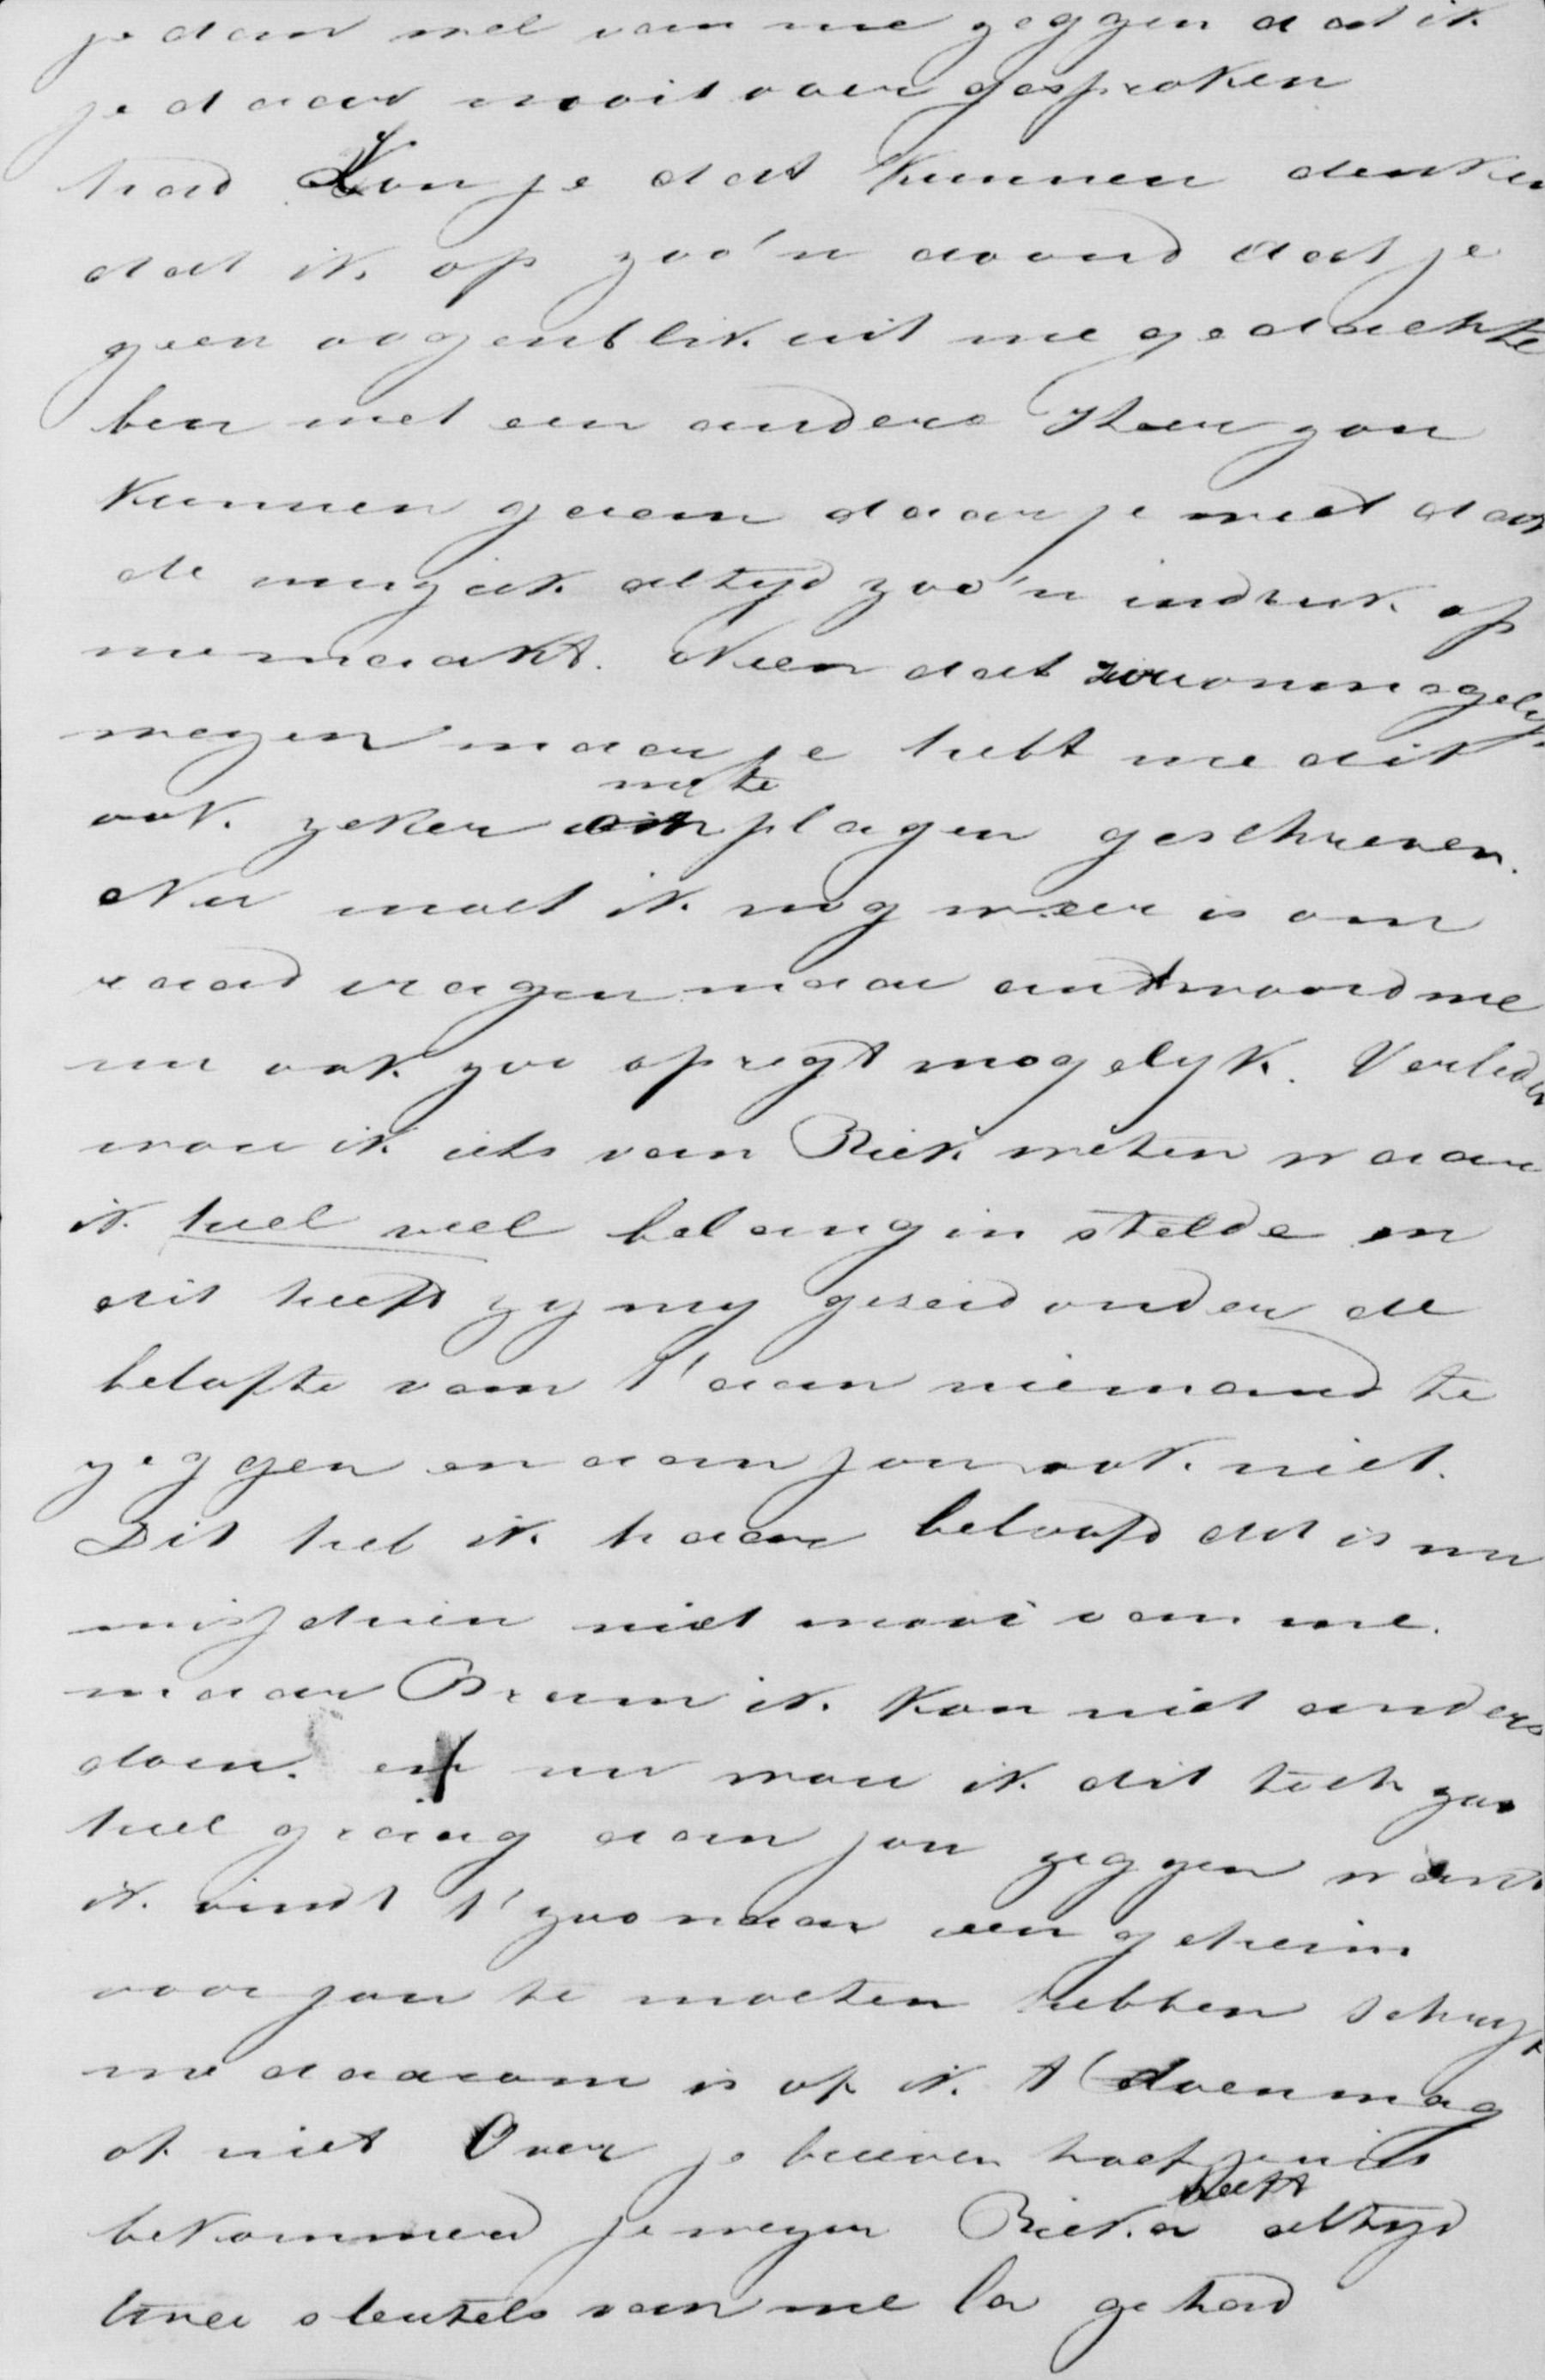 je dan wel van me zeggen dat ik
je daar nooit over gesproken
had Kon je dat kunnen denken
dat ik op zoo'n avond dat je
geen oogenblik uit me gedachte
ben met een andere Heer zou
kunnen gaan daar je weet dat
de muziek altyd zoo'n indruk op
me maakt. Neen dat zou onmogelyk
wezen maar je hebt me dit
ook zeker me te plagen geschreven.
Nu moet ik nog weer is om
raad vragen maar antwoord me
nu ook zoo opregt mogelyk. Verleden
wou ik iets van Riek weten waar
ik heel veel belang in stelde en
dit heeft zy my gezeid onder de
belofte van t' aan niemand te
zeggen en aan jou ook niet.
Dit heb ik haar beloofd dit is nu
misschien niet mooi van me.
maar Bram ik kon niet anders
doen. en nu wou ik dit toch zoo
heel graag aan jou zeggen want
ik vindt t' zoo naar een geheim
voor jou te moeten hebben schryf
me daarom is of ik t' doen mag
of niet Over je brieven hoef je niets
bekommerd je wezen Riek heeft altyd
twee sleutels van me la gehad